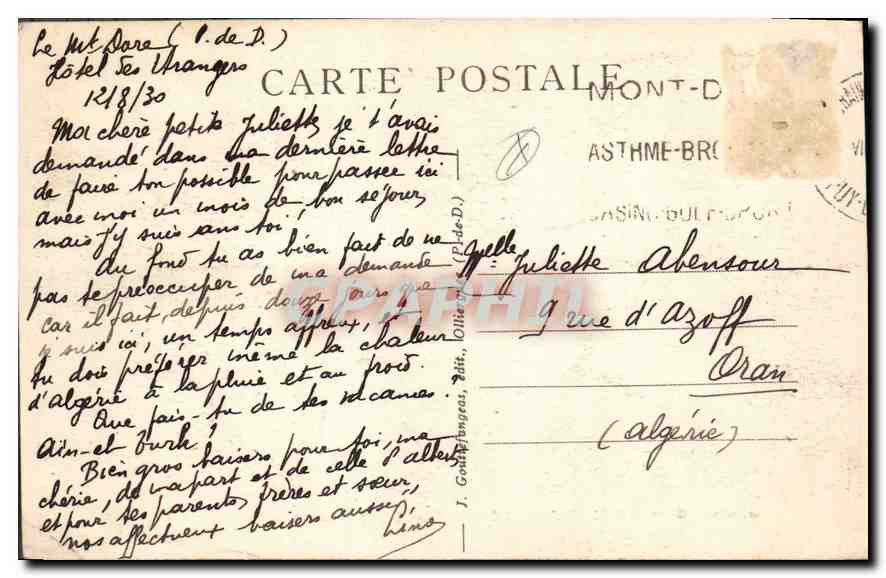 Le Mt Dore (P. de D.)
Hôtel des Etrangers
12/8/30
CARTE POSTALE
Ma chère petite Juliette, je t'avais
demandé dans ma dernière lettre
de faire ton possible pour passer ici
avec moi un mois de bon séjour,
mais j'y suis sans toi!
Au fond tu as bien fait de ne
pas te préoccuper de ma demande
car il fait, depuis douze jours que
je suis ici, un temps affreux,
tu dois préférer même la chaleur
d'algérie à la pluie et au froid.
Que fais-tu de tes vacances?
Aïn-el-Turk?
Bien gros baisers pour toi, ma
chérie, de ma part et de celle d'albert
et pour tes parents, frères et sœur,
nos affectueux baisers aussi,
J. Gouttefangeas, édit., Olliergues (P.-de-D.)
MONT-D
ASTHME-BRO
CASINO-GOLF-SPORT
Melle Juliette Abensour
9 rue d'Azoff
Oran
(algérie)
CPAPHIL